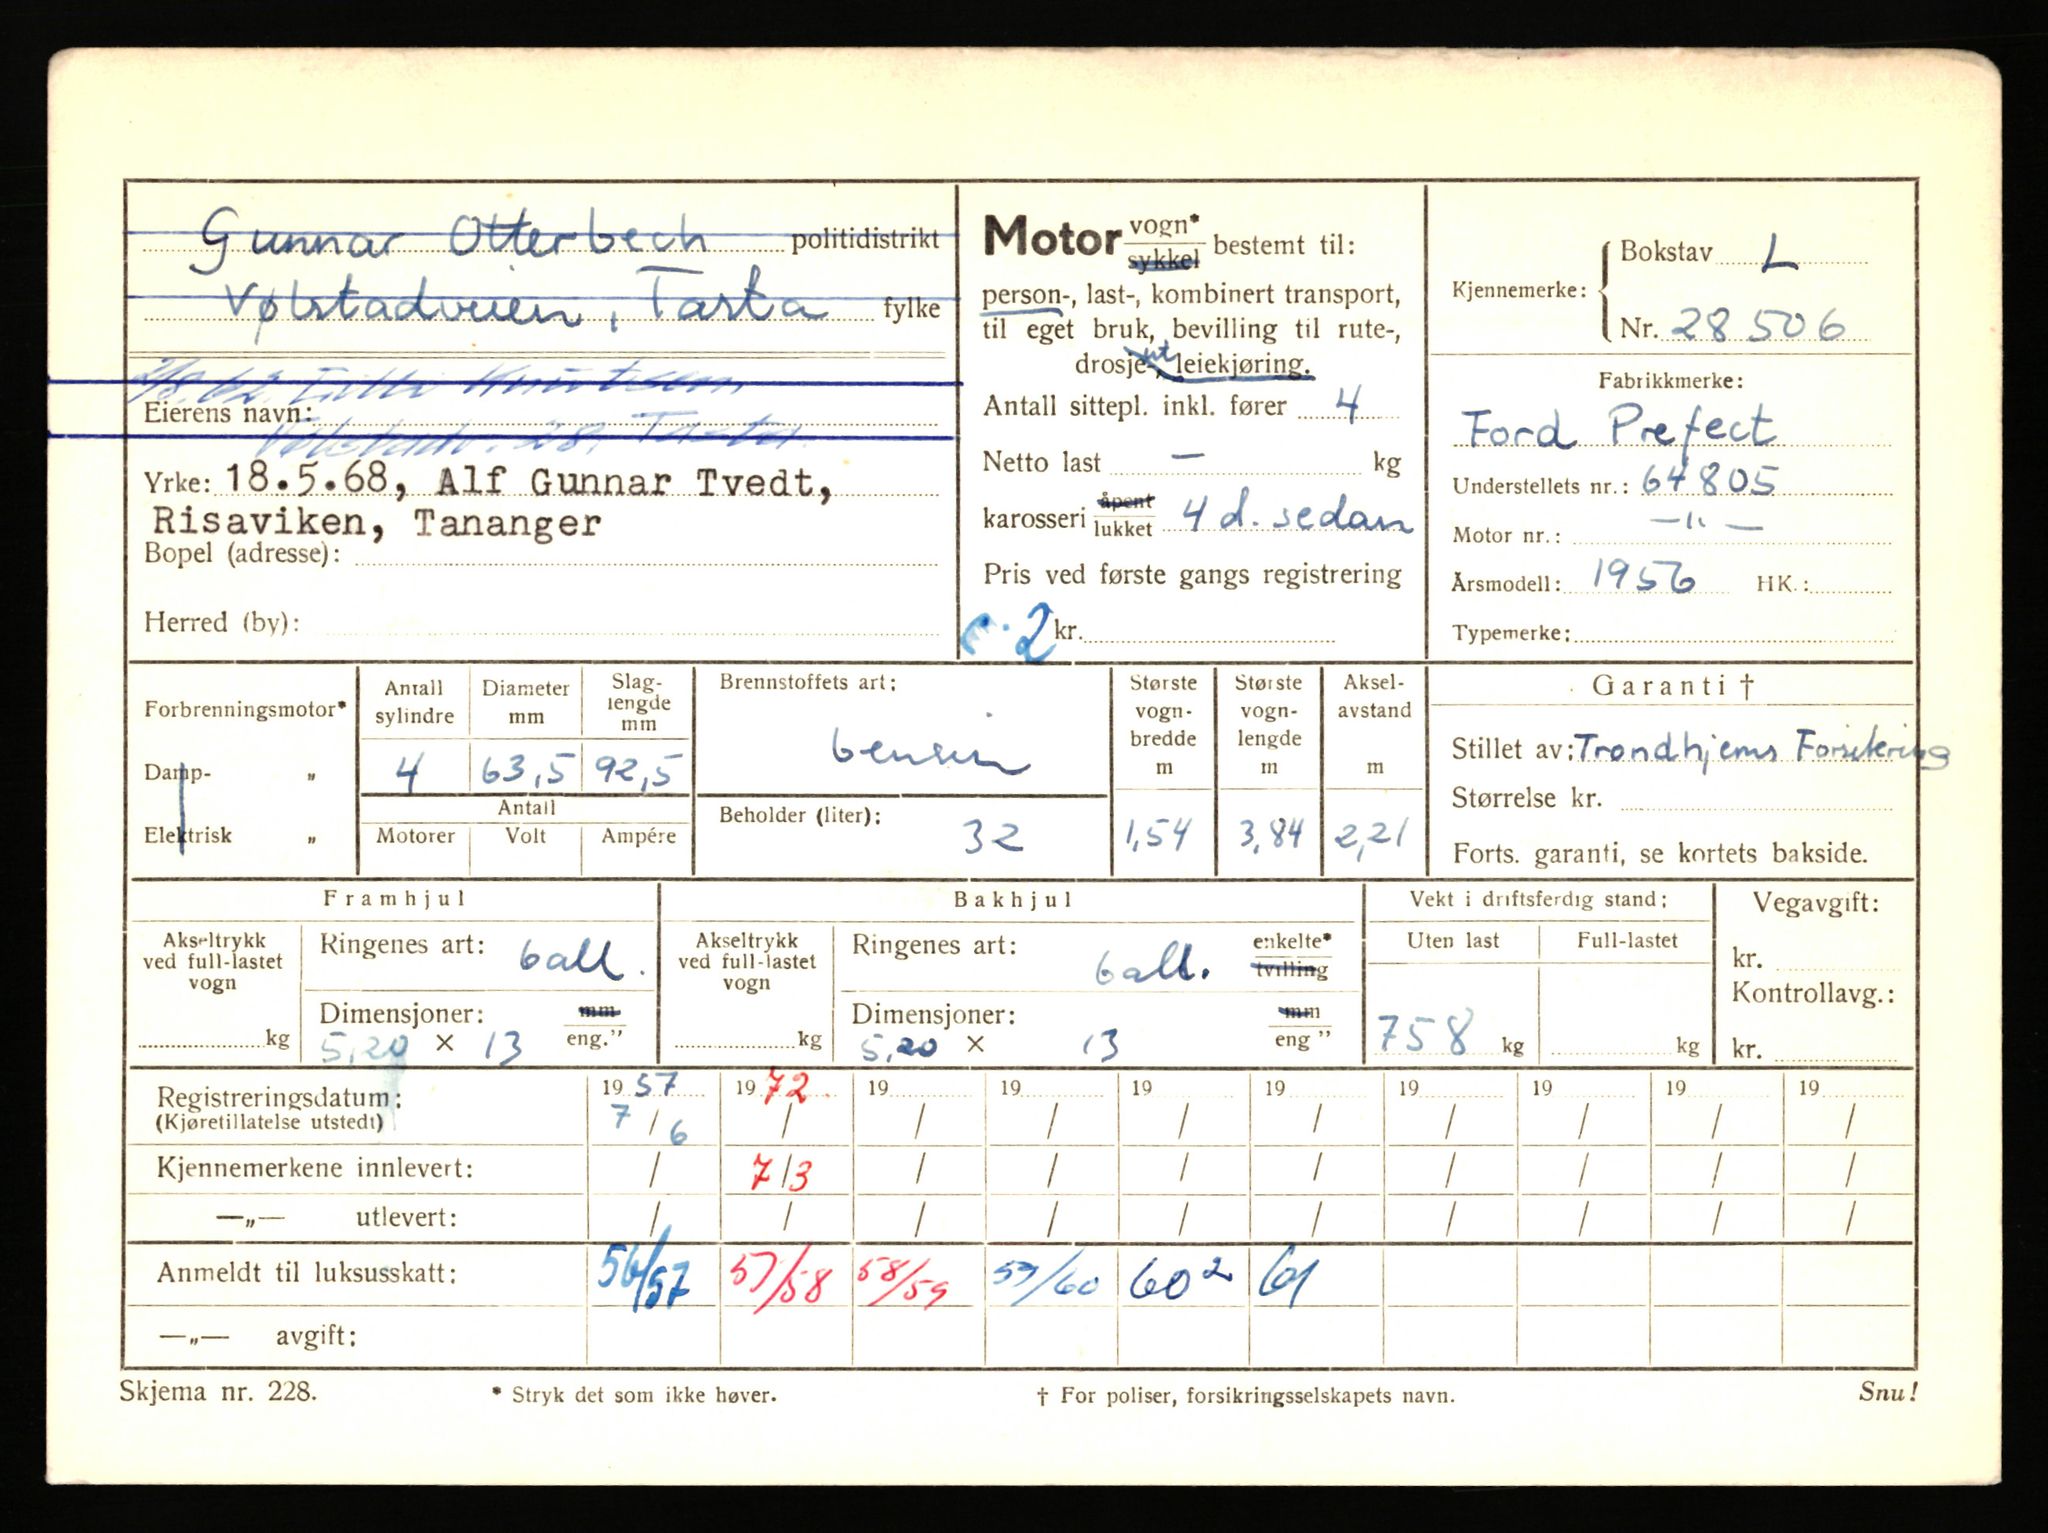 Gunnar Otterbech politidistrikt
Vølstadveien, Tasta fylke
2/8.62. Knutsen
Eierens navn:
Vølstadv. 28, Tasta
Yrke: 18.5.68, Alf Gunnar Tvedt,
Risaviken, Tananger
Bopel (adresse):
Herred (by):
Motor vogn* sykkel bestemt til:
person-, last-, kombinert transport,
til eget bruk, bevilling til rute-,
drosje-, ut leiekjøring.
Antall sittepl. inkl. fører 4
Netto last — kg
karosseri åpent lukket 4 d. sedan
Pris ved første gangs registrering
c. 2 kr.
Kjennemerke: Bokstav L
Nr. 28506
Fabrikkmerke:
Ford Prefect
Understellets nr.: 64805
Motor nr.: —"—
Årsmodell: 1956 HK.:
Typemerke:
Forbrenningsmotor*
Damp- „
Elektrisk „
Antall sylindre 4
Diameter mm 63,5
Slag-lengde mm 92,5
Antall
Motorer Volt Ampére
Brennstoffets art:
bensin
Beholder (liter): 32
Største vogn-bredde m 1,54
Største vogn-lengde m 3,84
Aksel-avstand m 2,21
Garanti †
Stillet av: Trondhjems Forsikring
Størrelse kr.
Forts. garanti, se kortets bakside.
Framhjul
Akseltrykk ved full-lastet vogn
kg
Ringenes art: ball.
Dimensjoner: mm eng."
5,20 × 13
Bakhjul
Akseltrykk ved full-lastet vogn
kg
Ringenes art: ball. enkelte* tvilling
Dimensjoner: mm eng"
5,20 × 13
Vekt i driftsferdig stand:
Uten last Full-lastet
758 kg kg
Vegavgift:
kr.
Kontrollavg.:
kr.
Registreringsdatum: 1957 1972 19 19 19 19 19 19 19 19
(Kjøretillatelse utstedt) 7/6 / / / / / / / / /
Kjennemerkene innlevert: / 7/3 / / / / / / / /
—„— utlevert: / / / / / / / / / /
Anmeldt til luksusskatt: 56/57 57/58 58/59 59/60 60² 61
—„— avgift:
Skjema nr. 228. * Stryk det som ikke høver. † For poliser, forsikringsselskapets navn. Snu!